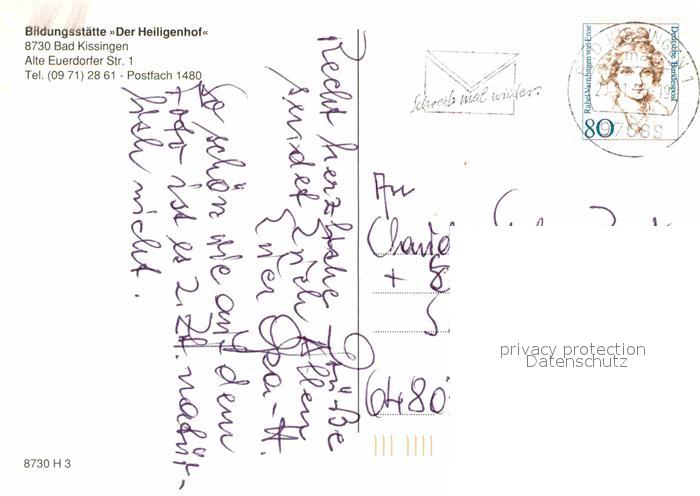 Bildungsstätte »Der Heiligenhof«
8730 Bad Kissingen
Alte Euerdorfer Str. 1
Tel. (09 71) 28 61 - Postfach 1480
Recht herzliche Grüße
sendet Euch Allen
Euer Opa-H.
So schön wie auf dem
Foto ist es z. Zt. natür-
lich nicht.
Schreib mal wieder.
Rahel Varnhagen von Ense
Deutsche Bundespost
80
97688
An
Claud
+
6480
privacy protection
Datenschutz
8730 H 3